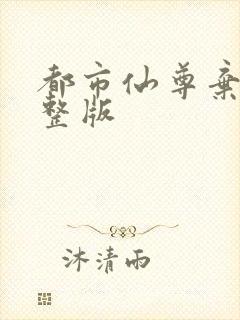 都市仙尊弃
整版
沐清雨